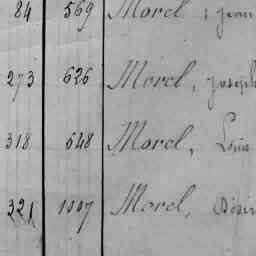 84 569 Morel, Jean
273 626 Morel, Joseph
318 648 Morel, Louis
321 1007 Morel, Désir